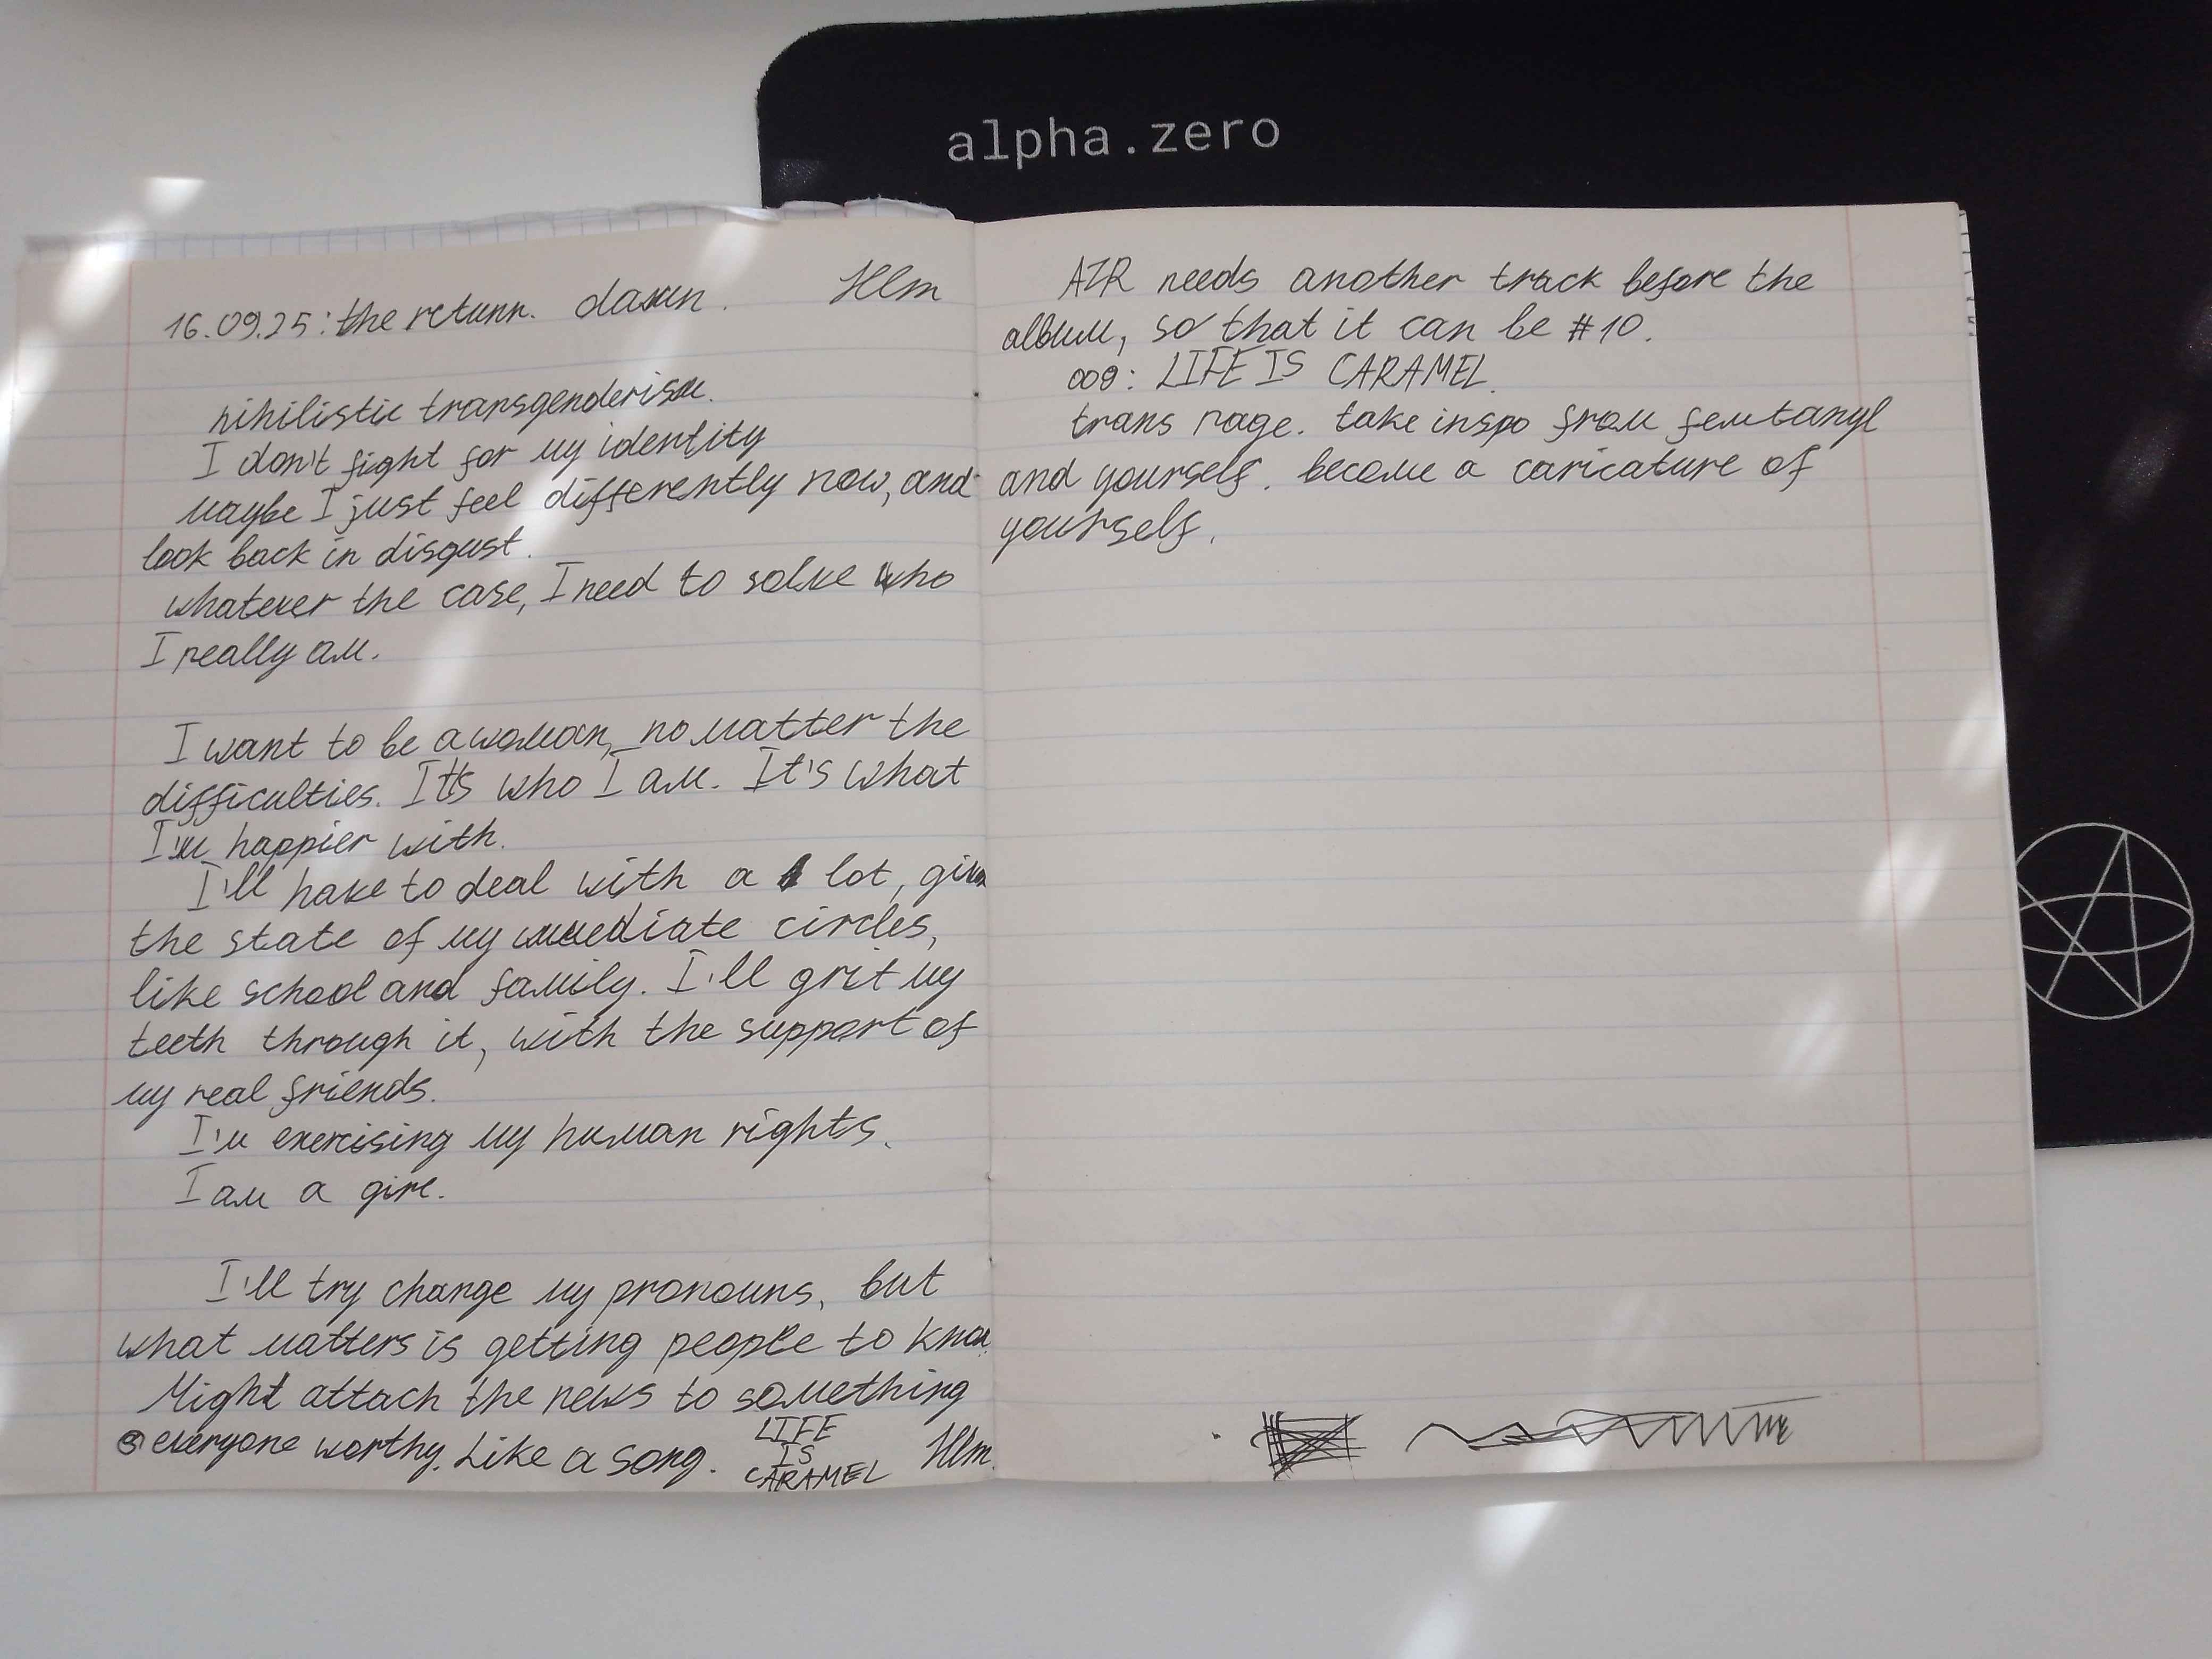 alpha.zero
16.09.25: the return. dawn. Hlm
nihilistic transgenderism.
I don't fight for my identity
maybe I just feel differently now, and
look back in disgust.
whatever the case, I need to solve who
I really am.
I want to be a woman, no matter the
difficulties. It's who I am. It's what
I'm happier with.
I'll have to deal with a lot, given
the state of my immediate circles,
like school and family. I'll grit my
teeth through it, with the support of
my real friends.
I'm exercising my human rights.
I am a girl.
I'll try change my pronouns, but
what matters is getting people to know.
Might attach the news to something
everyone worthy. Like a song. Hlm.
LIFE
IS
CARAMEL
AZR needs another track before the
album, so that it can be #10.
009: LIFE IS CARAMEL.
trans rage. take inspo from femtanyl
and yourself. become a caricature of
yourself.